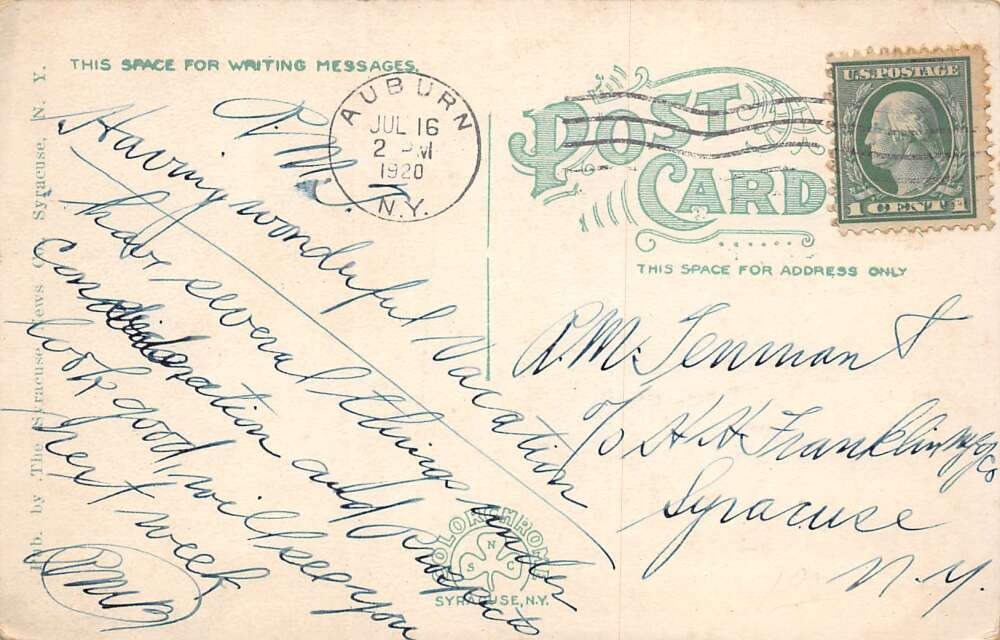 THIS SPACE FOR WRITING MESSAGES.
AUBURN
JUL 16
2 PM
1920
N.Y.
POST CARD
U.S. POSTAGE
1 CENT 1
THIS SPACE FOR ADDRESS ONLY
Pub. by The Syracuse News Co. Syracuse, N. Y.
R.M.T.
Having wonderful Vacation
have several things under
Consideration and Prospects
look good, will see you
next week
R.M. Tennant
c/o H H Franklin Mfg Co
Syracuse
N.Y.
COLORCHROME
N
S C
SYRACUSE, N.Y.